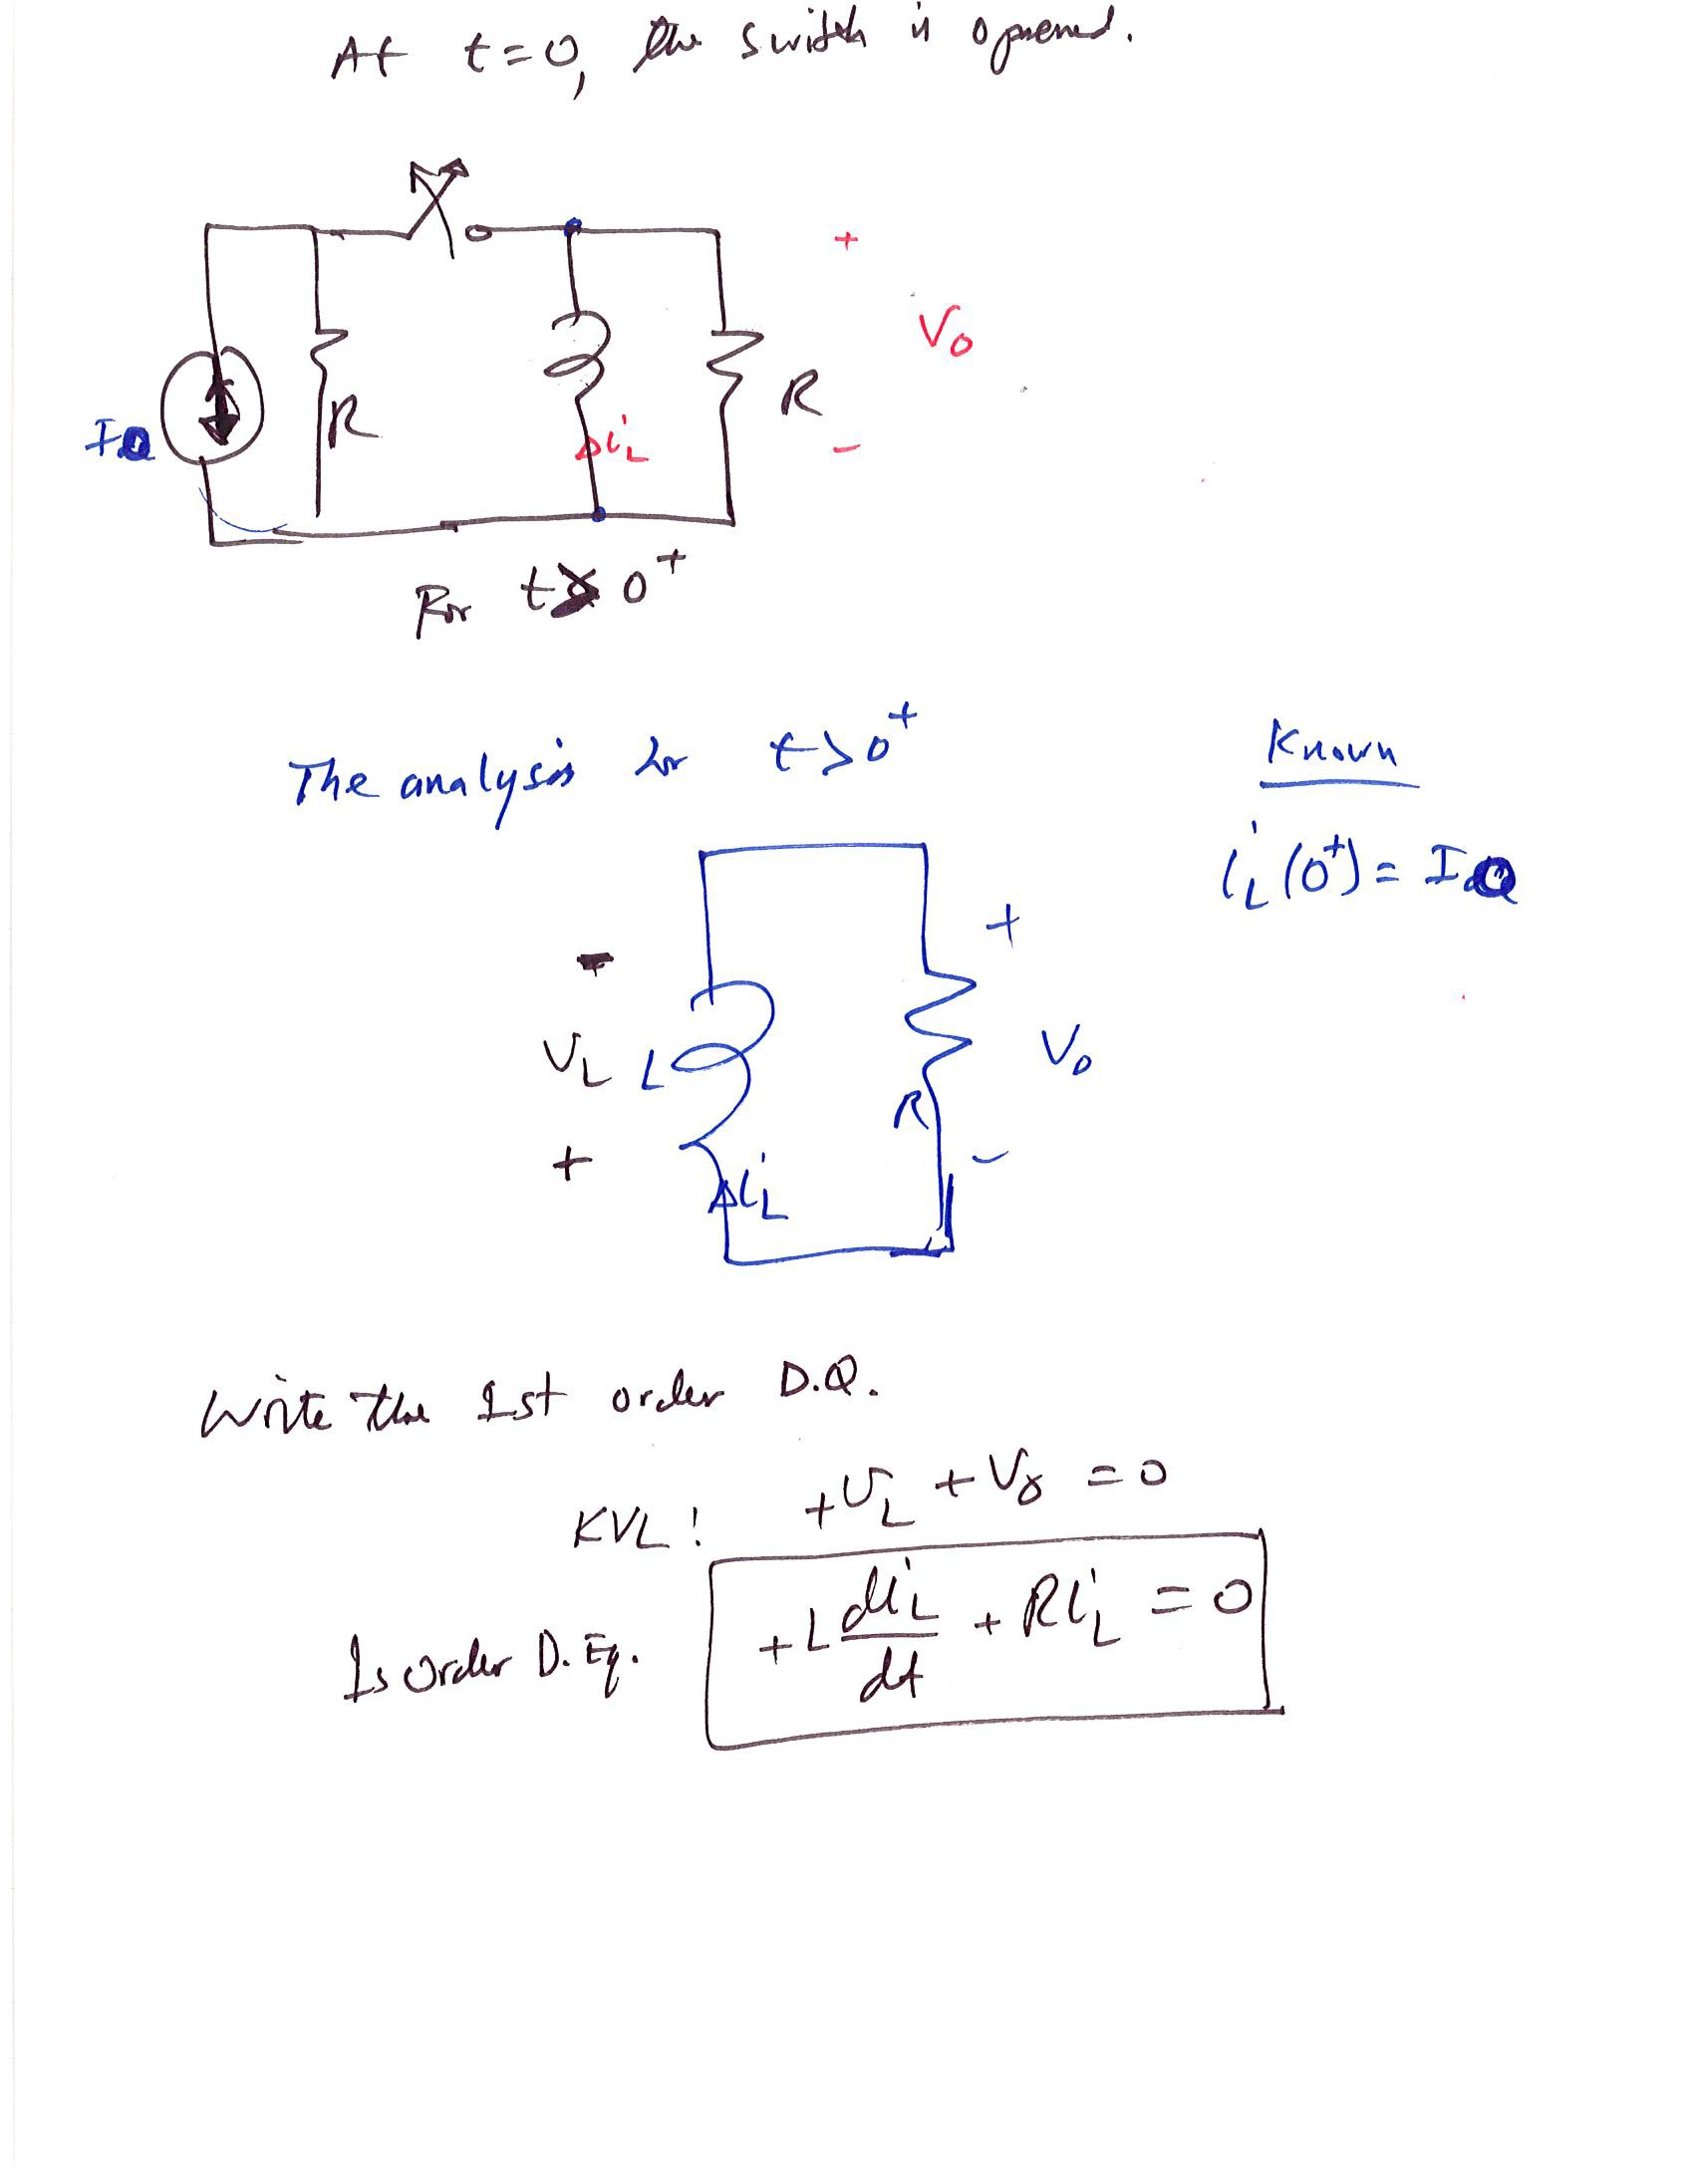 At t=0, the switch is opened.
+
V₀
R
R
I_Q
i_L
-
For t > 0⁺
The analysis for t>0⁺
Known
i_L(0⁺) = I_Q
-
+
V_L
L
V₀
R
+
-
i_L
Write the 1st order D.Q.
KVL: +V_L + V₀ = 0
Is order D. Eq. +L di_L/dt + Ri_L = 0